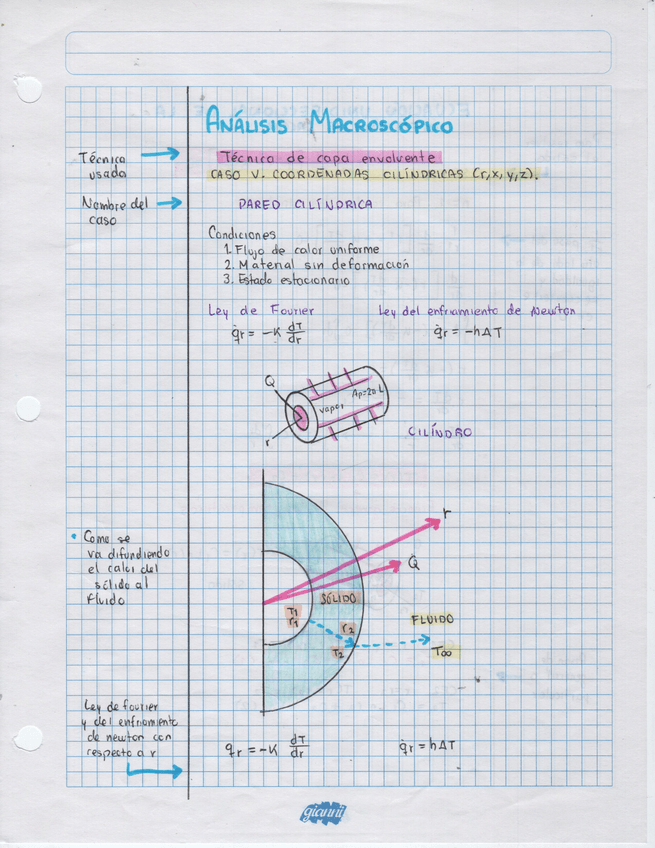 ANÁLISIS MACROSCÓPICO
Técnica usada
Técnica de capa envolvente
CASO V. COORDENADAS CILÍNDRICAS (r,x,y,z).
Nombre del caso
PARED CILÍNDRICA
Condiciones
1. Flujo de calor uniforme
2. Material sin deformación
3. Estado estacionario
Ley de Fourier
Ley del enfriamiento de Newton
q̇r = -K dT/dr
q̇r = -hΔT
Q
vapor
r
CILÍNDRO
r
Q̇
• Come se
va difundiendo
el calor del
sólido al
fluido
SÓLIDO
T1
r1
r2
T2
FLUIDO
T∞
Ley de fourier
y del enfriamiento
de newton con
respecto a r
qr = -K dT/dr
q̇r = hΔT
gianni